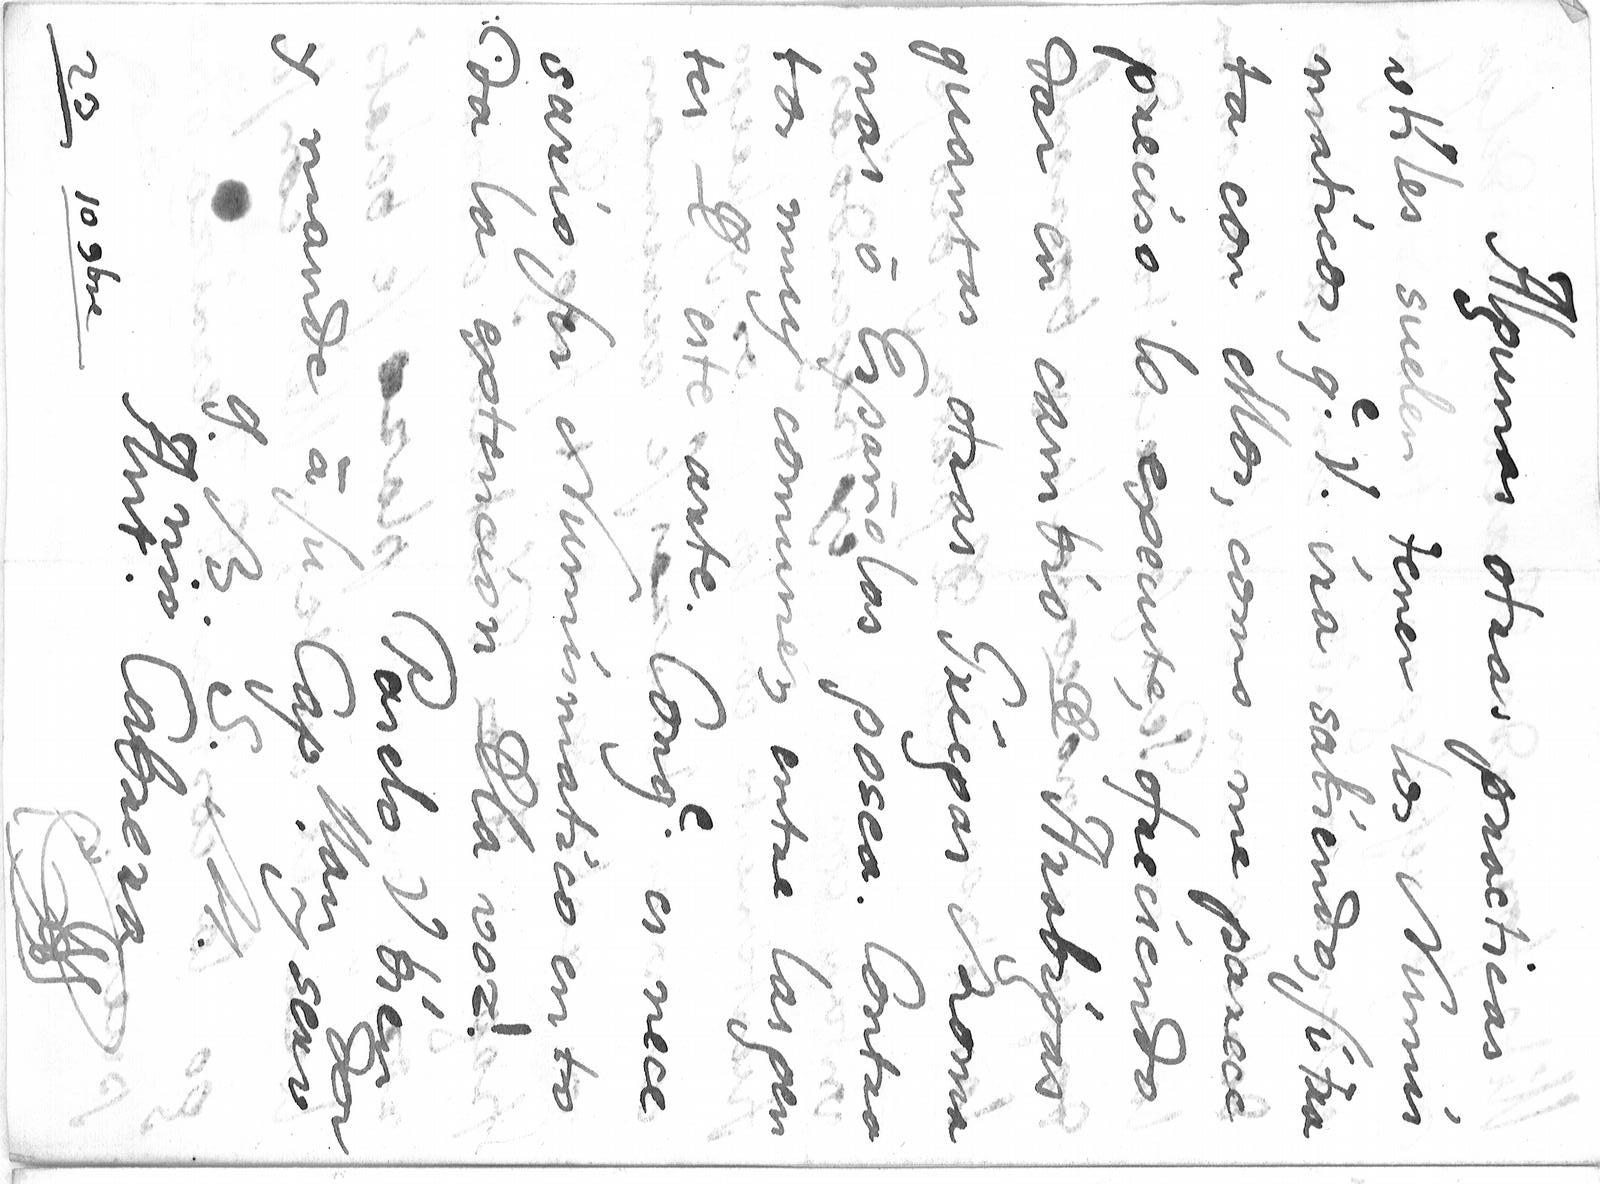 Algunas otras practicas
utiles suelen tener los Numis
maticos, q.e V. ira sabiendo, si tra
ta con ellos, como me parece
preciso lo execute, ofreciendo
dar en cambio de Arabigas
quantas otras Griegas Roma
nas ò Españolas posea. Contra
tos muy comunes entre las gen
tes de este arte. Conq.e es nece
sario ser Numismatico en to
da la extencion de la voz!
Paselo V. bien
y mande à su Cap. Man y serv dor
q. B. S. M.
Ant. Cabrera
23 10gbre